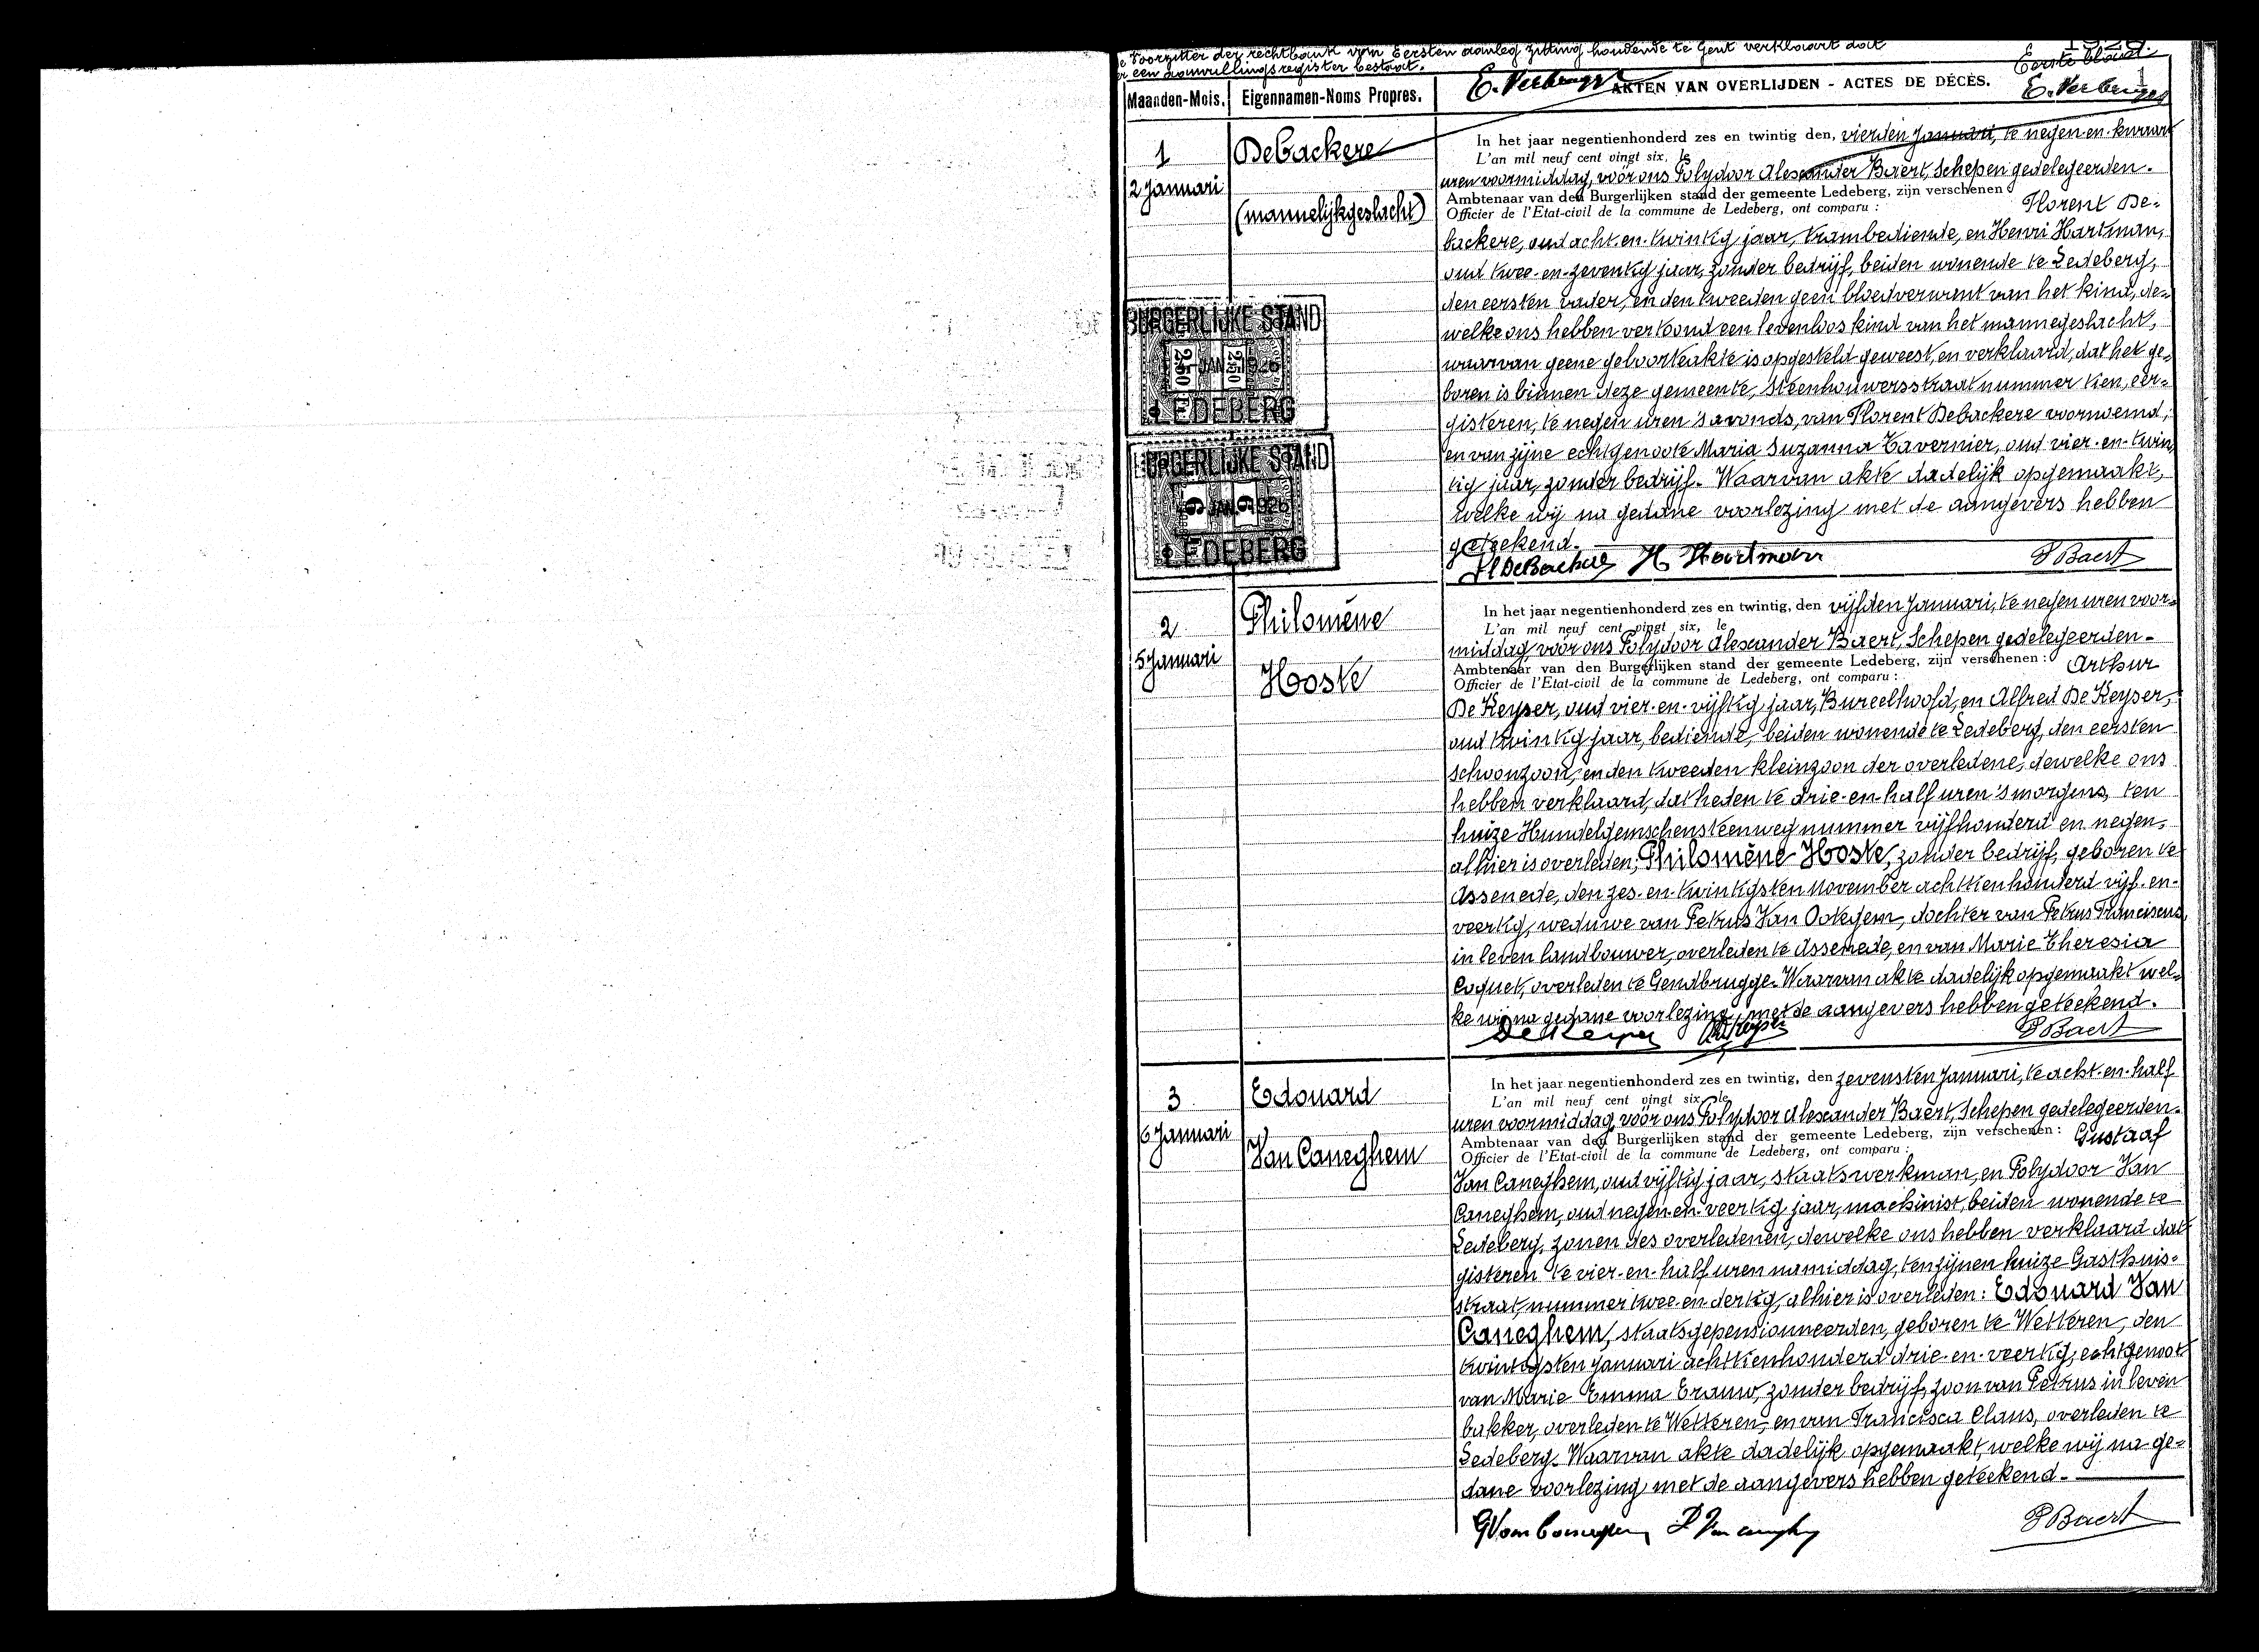 Voorzitter der rechtbank van Eersten aanleg zitting houdende te Gent verklaart dat
er een aanvullingsregister bestaat.
1926.
Eerste blad
1
Maanden-Mois. Eigennamen-Noms Propres. E. Verbrugge AKTEN VAN OVERLIJDEN - ACTES DE DÉCÈS. E. Verbrugge
1
2 Januari
Debackere
(mannelijkgeslacht)
BURGERLIJKE STAND
2.50 JAN 2.50 1926
LEDEBERG
BURGERLIJKE STAND
JAN 1926
LEDEBERG
In het jaar negentienhonderd zes en twintig den, vierden Januari, te negen-en-kwart
L'an mil neuf cent vingt six, le
uren voormiddag, vóór ons Polydoor Alexander Baert, Schepen gedelegeerden-
Ambtenaar van den Burgerlijken stand der gemeente Ledeberg, zijn verschenen:
Officier de l'Etat-civil de la commune de Ledeberg, ont comparu : Florent De-
backere, oud acht-en-twintig jaar, trambediende, en Henri Hartman,
oud twee-en-zeventig jaar, zonder bedrijf, beiden wonende te Ledeberg,
den eersten vader, en den tweeden geen bloedverwant van het kind, de-
welke ons hebben vertoond een levenloos kind van het mannegeslacht,
waarvan geene geboorteakte is opgesteld geweest, en verklaard, dat het ge-
boren is binnen deze gemeente, Steenhouwersstraat nummer tien, eer-
gisteren, te negen uren 's avonds, van Florent Debackere voornoemd,
en van zijne echtgenoote Maria Suzanna Tavernier, oud vier-en-twin-
tig jaar, zonder bedrijf. Waarvan akte dadelijk opgemaakt,
welke wij na gedane voorlezing met de aangevers hebben
geteekend.
Fl DeBackere H Hartman P Baert
2
5 Januari
Philomène
Hoste
In het jaar negentienhonderd zes en twintig, den vijfden Januari, te negen uren voor-
L'an mil neuf cent vingt six, le
middag, vóór ons Polydoor Alexander Baert, Schepen gedelegeerden-
Ambtenaar van den Burgerlijken stand der gemeente Ledeberg, zijn verschenen : Arthur
Officier de l'Etat-civil de la commune de Ledeberg, ont comparu :
De Keyser, oud vier-en-vijftig jaar, Bureelhoofd, en Alfred De Keyser,
oud twintig jaar, bediende, beiden wonende te Ledeberg, den eersten
schoonzoon, en den tweeden kleinzoon der overledene, dewelke ons
hebben verklaard, dat heden te drie-en-half uren 's morgens, ten
huize Hundelgemschensteenweg nummer vijfhonderd en negen,
alhier is overleden; Philomène Hoste, zonder bedrijf, geboren te
Assenede, den zes-en-twintigsten November achttienhonderd vijf-en-
veertig, weduwe van Petrus Van Ootegem, dochter van Petrus Franciscus,
in leven landbouwer, overleden te Assenede, en van Marie Theresia
Coquet, overleden te Gendbrugge. Waarvan akte dadelijk opgemaakt wel-
ke wij na gedane voorlezing, met de aangevers hebben geteekend.
De Keyser A De Keyser P Baert
3
6 Januari
Edouard
Van Caneghem
In het jaar negentienhonderd zes en twintig, den zevensten Januari, te acht-en-half
L'an mil neuf cent vingt six, le
uren voormiddag, vóór ons Polydoor Alexander Baert, Schepen gedelegeerden-
Ambtenaar van den Burgerlijken stand der gemeente Ledeberg, zijn verschenen : Gustaaf
Officier de l'Etat-civil de la commune de Ledeberg, ont comparu :
Van Caneghem, oud vijftig jaar, staatswerkman, en Polydoor Van
Caneghem, oud negen-en-veertig jaar, machinist, beiden wonende te
Ledeberg, zonen des overledenen, dewelke ons hebben verklaard dat
gisteren te vier-en-half uren namiddag, ten zijnen huize Gasthuis-
straat, nummer twee-en-dertig, alhier is overleden : Edouard Van
Caneghem, staatsgepensionneerden, geboren te Wetteren, den
twintigsten Januari achttienhonderd drie-en-veertig, echtgenoot
van Marie Emma Erauw, zonder bedrijf, zoon van Petrus in leven
bakker, overleden te Wetteren, en van Francisca Claus, overleden te
Ledeberg. Waarvan akte dadelijk opgemaakt, welke wij na ge-
dane voorlezing met de aangevers hebben geteekend.
G Van Caneghem P Van Caneghem P Baert